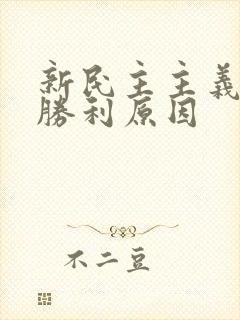 新民主主義
勝利原因
不二豆